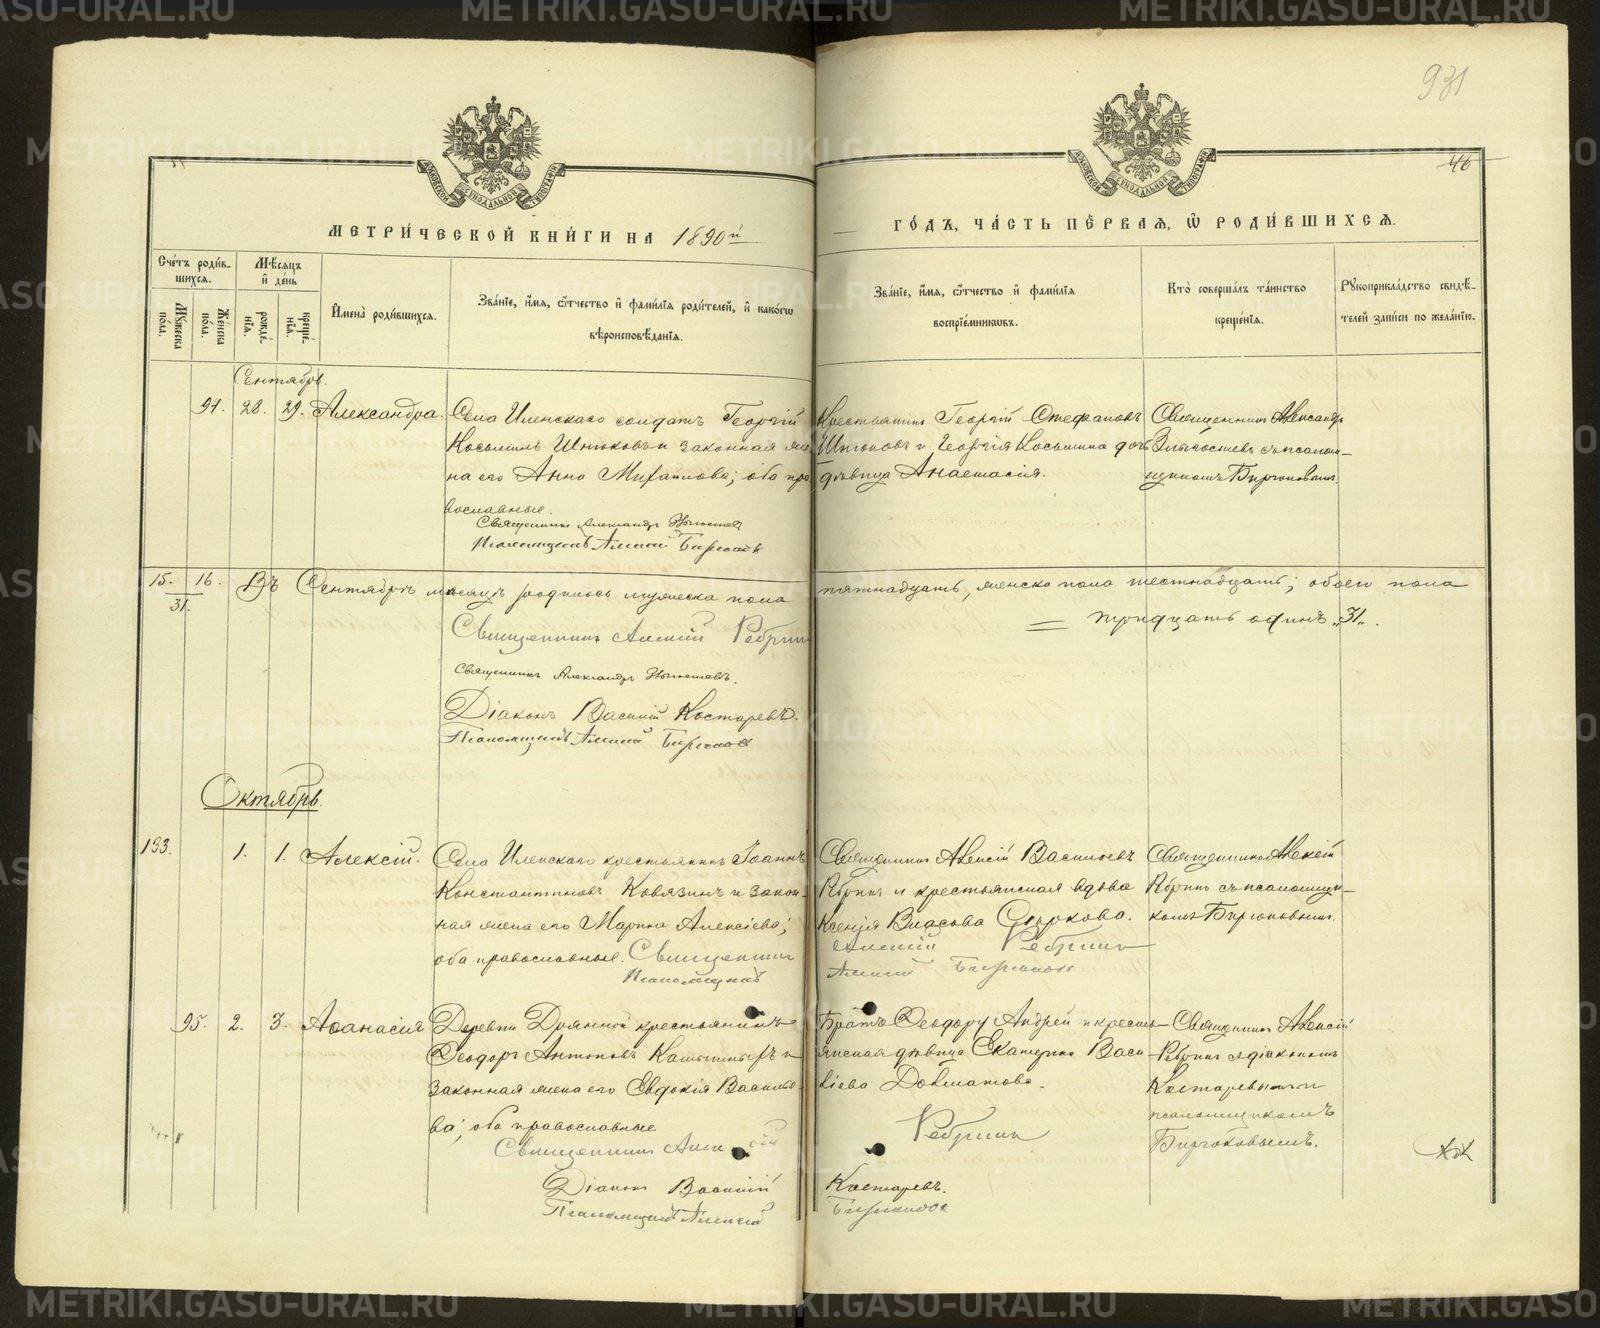 931
46
МОСКОВСКОЙ СѴНОДАЛЬНОЙ ТѴПОГРАФІИ
МОСКОВСКОЙ СѴНОДАЛЬНОЙ ТѴПОГРАФІИ
МЕТРИ́ЧЕСКОЙ КНИ́ГИ НА 1890й
ГО́ДЪ, ЧА́СТЬ ПЕ́РВАЯ, Ѡ РОДИ́ВШИХСЯ.
Сче́тъ роди́в-
шихся.
Мѣ́сяцъ
и҆ де́нь
Мꙋ́жеска по́ла.
Же́нска по́ла.
рожде́-
нїѧ.
креще́-
нїѧ.
И҆мена̀ роди́вшихся.
Зва́нїе, и҆́мѧ, ѻ҆́тчество и҆ фами́лїѧ роди́телей, и҆ како́гѡ
вѣроисповѣ́данїѧ.
Зва́нїе, и҆́мѧ, ѻ҆́тчество и҆ фами́лїѧ
воспрїе́мникѡвъ.
Кто̀ соверша́лъ та́инство
креще́нїѧ.
Рꙋкоприкла́дство свидѣ́-
телей за́писи по жела́нїю.
Сентябрь.
94. 28. 29. Александра.
Села Иленскаго солдатъ Георгій
Косьминъ и законная же-
на его Анна Михаилова; оба пра
вославные.
Священникъ Александръ
Псаломщикъ Алексій Бирюковъ
Крестьянинъ Георгій Стефановъ
и Георгія Косьмина дочь
дѣвица Анастасія.
Священникъ Александръ
съ псалом-
щикомъ Бирюковымъ.
15. 16.
31.
Въ Сентябрѣ мѣсяцѣ родилось мужеска пола
пятнадцать, женска пола шестнадцать; обоего пола
тридцать одинъ „31„.
Священникъ Алексій Ребринъ
Священникъ Александръ
Діаконъ Василій Костаревъ.
Псаломщикъ Алексій Бирюковъ
Октябрь.
133. 1. 1. Алексій.
Села Иленскаго крестьянинъ Іоаннъ
Константиновъ Ковязинъ и закон-
ная жена его Марина Алексіева;
оба православные. Священникъ
Псаломщикъ
Священникъ Алексій Васильевъ
Ребринъ и крестьянская вдова
Ксенія Власова Сурkова.
Алексій Ребринъ
Алексій Бирюковъ
Священникъ Алексій
Ребринъ съ псаломщи-
комъ Бирюковымъ.
95. 2. 3. Аѳанасія
Деревни Дрянной крестьянинъ
Ѳеодоръ Антоновъ и
законная жена его Евдокія Василье-
ва; оба православные
Священникъ Алексій
Діаконъ Василій
Псаломщикъ Алексій
Братъ Ѳеодору Андрей и кресть-
янская дѣвица Екатерина Васи-
ліева Долматова.
Ребринъ
Костаревъ.
Бирюковъ
Священникъ Алексій
Ребринъ съ діакономъ
Костаревымъ и
псаломщикомъ
Бирюковымъ.
METRIKI.GASO-URAL.RU